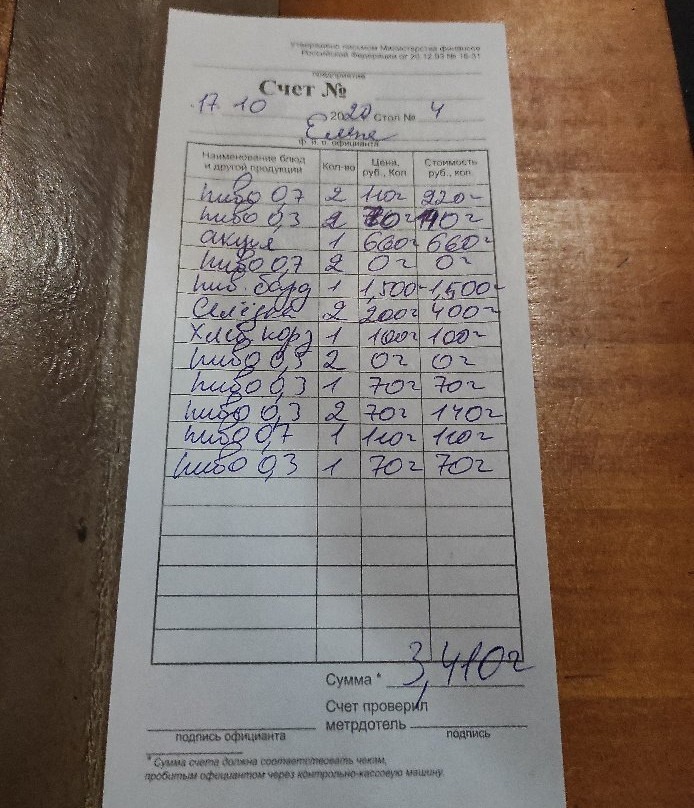 Утверждено письмом Министерства финансов
Российской Федерации от 20.12.93 № 16-31
предприятие
Счет №
17 10 2020 Стол № 4
Елена
ф. и. о. официанта
Наименование блюд и другой продукции Кол-во Цена, руб., Коп. Стоимость руб., коп.
пиво 0,7 2 110= 220=
пиво 0,3 2 70= 140=
акция 1 660= 660=
пиво 0,7 2 0= 0=
1 1,500= 1,500=
Селёдка 2 200= 400=
Хлеб. корз 1 100= 100=
пиво 0,3 2 0= 0=
пиво 0,3 1 70= 70=
пиво 0,3 2 70= 140=
пиво 0,7 1 110= 110=
пиво 0,3 1 70= 70=
Сумма * 3,410=
Счет проверил
метрдотель
подпись официанта подпись
* Сумма счета должна соответствовать чекам,
пробитым официантом через контрольно-кассовую машину.